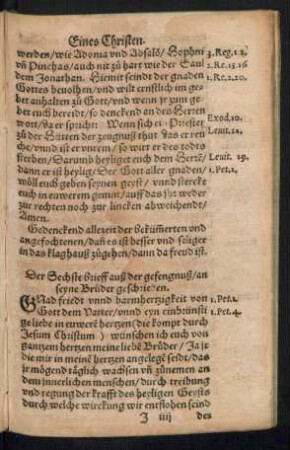 Eines Christen.
werden/wie Adonia vnd Absalõ/Hophni
vñ Pinchas/auch nit zů hart wie der Saul
dem Jonathan. Hiemit seindt der gnaden
Gottes beuolhen/vnd wilt ernstlich im ge-
bet anhalten zů Gott/vnd wenn jr zum ge-
bet euch bereit/so denckend an des Herren
wort/da er spricht: Wenn sich ei Priester
zů der Hütten der zeugnuß thut das er reu
che/vnnd ist er vnrein/so wirt er des todts
sterben/Darumb heyliget euch dem Herrẽ/
dann er ist heylig/Der Gott aller gnaden/
wöll euch geben seynen geyst/vnnd stercke
euch in euwerem gmüt/auff das jhr weder
zur rechten noch zur lincken abweichendt/
Amen.
Gedenckend allezeit der bekümerten vnd
angefochtenen/dañ es ist besser vnd seliger
in das klaghauß zůgehen/dann da freud ist.
3.Reg.1.2.
1.Re.15.16
1.Re.2.20.
Exod.10.
Leuit.21.
Leuit. 19.
1.Pet.1.
Der Sechste brieff auß der gefengnuß/an
seyne Brüder geschriben.
GNad friedt vnnd barmhertzigkeit von
Gott dem Vatter/vnnd eyn einbrünsti
ge liebe in euwere hertzen (die kompt durch
Jesum Christum) wünschen ich euch von
gantzem hertzen meine liebe Brüder/Ja je
die mir in meinẽ hertzen angelegẽ seids/das
jr mögend täglich wachsen vñ zůnemen an
dem jnnerlichen menschen/durch treibung
vnd regung der krafft des heyligen Geysts
durch welche wirckung wir entflohen seind
1.Pet.1.
1.Pet.4.
J iiij des